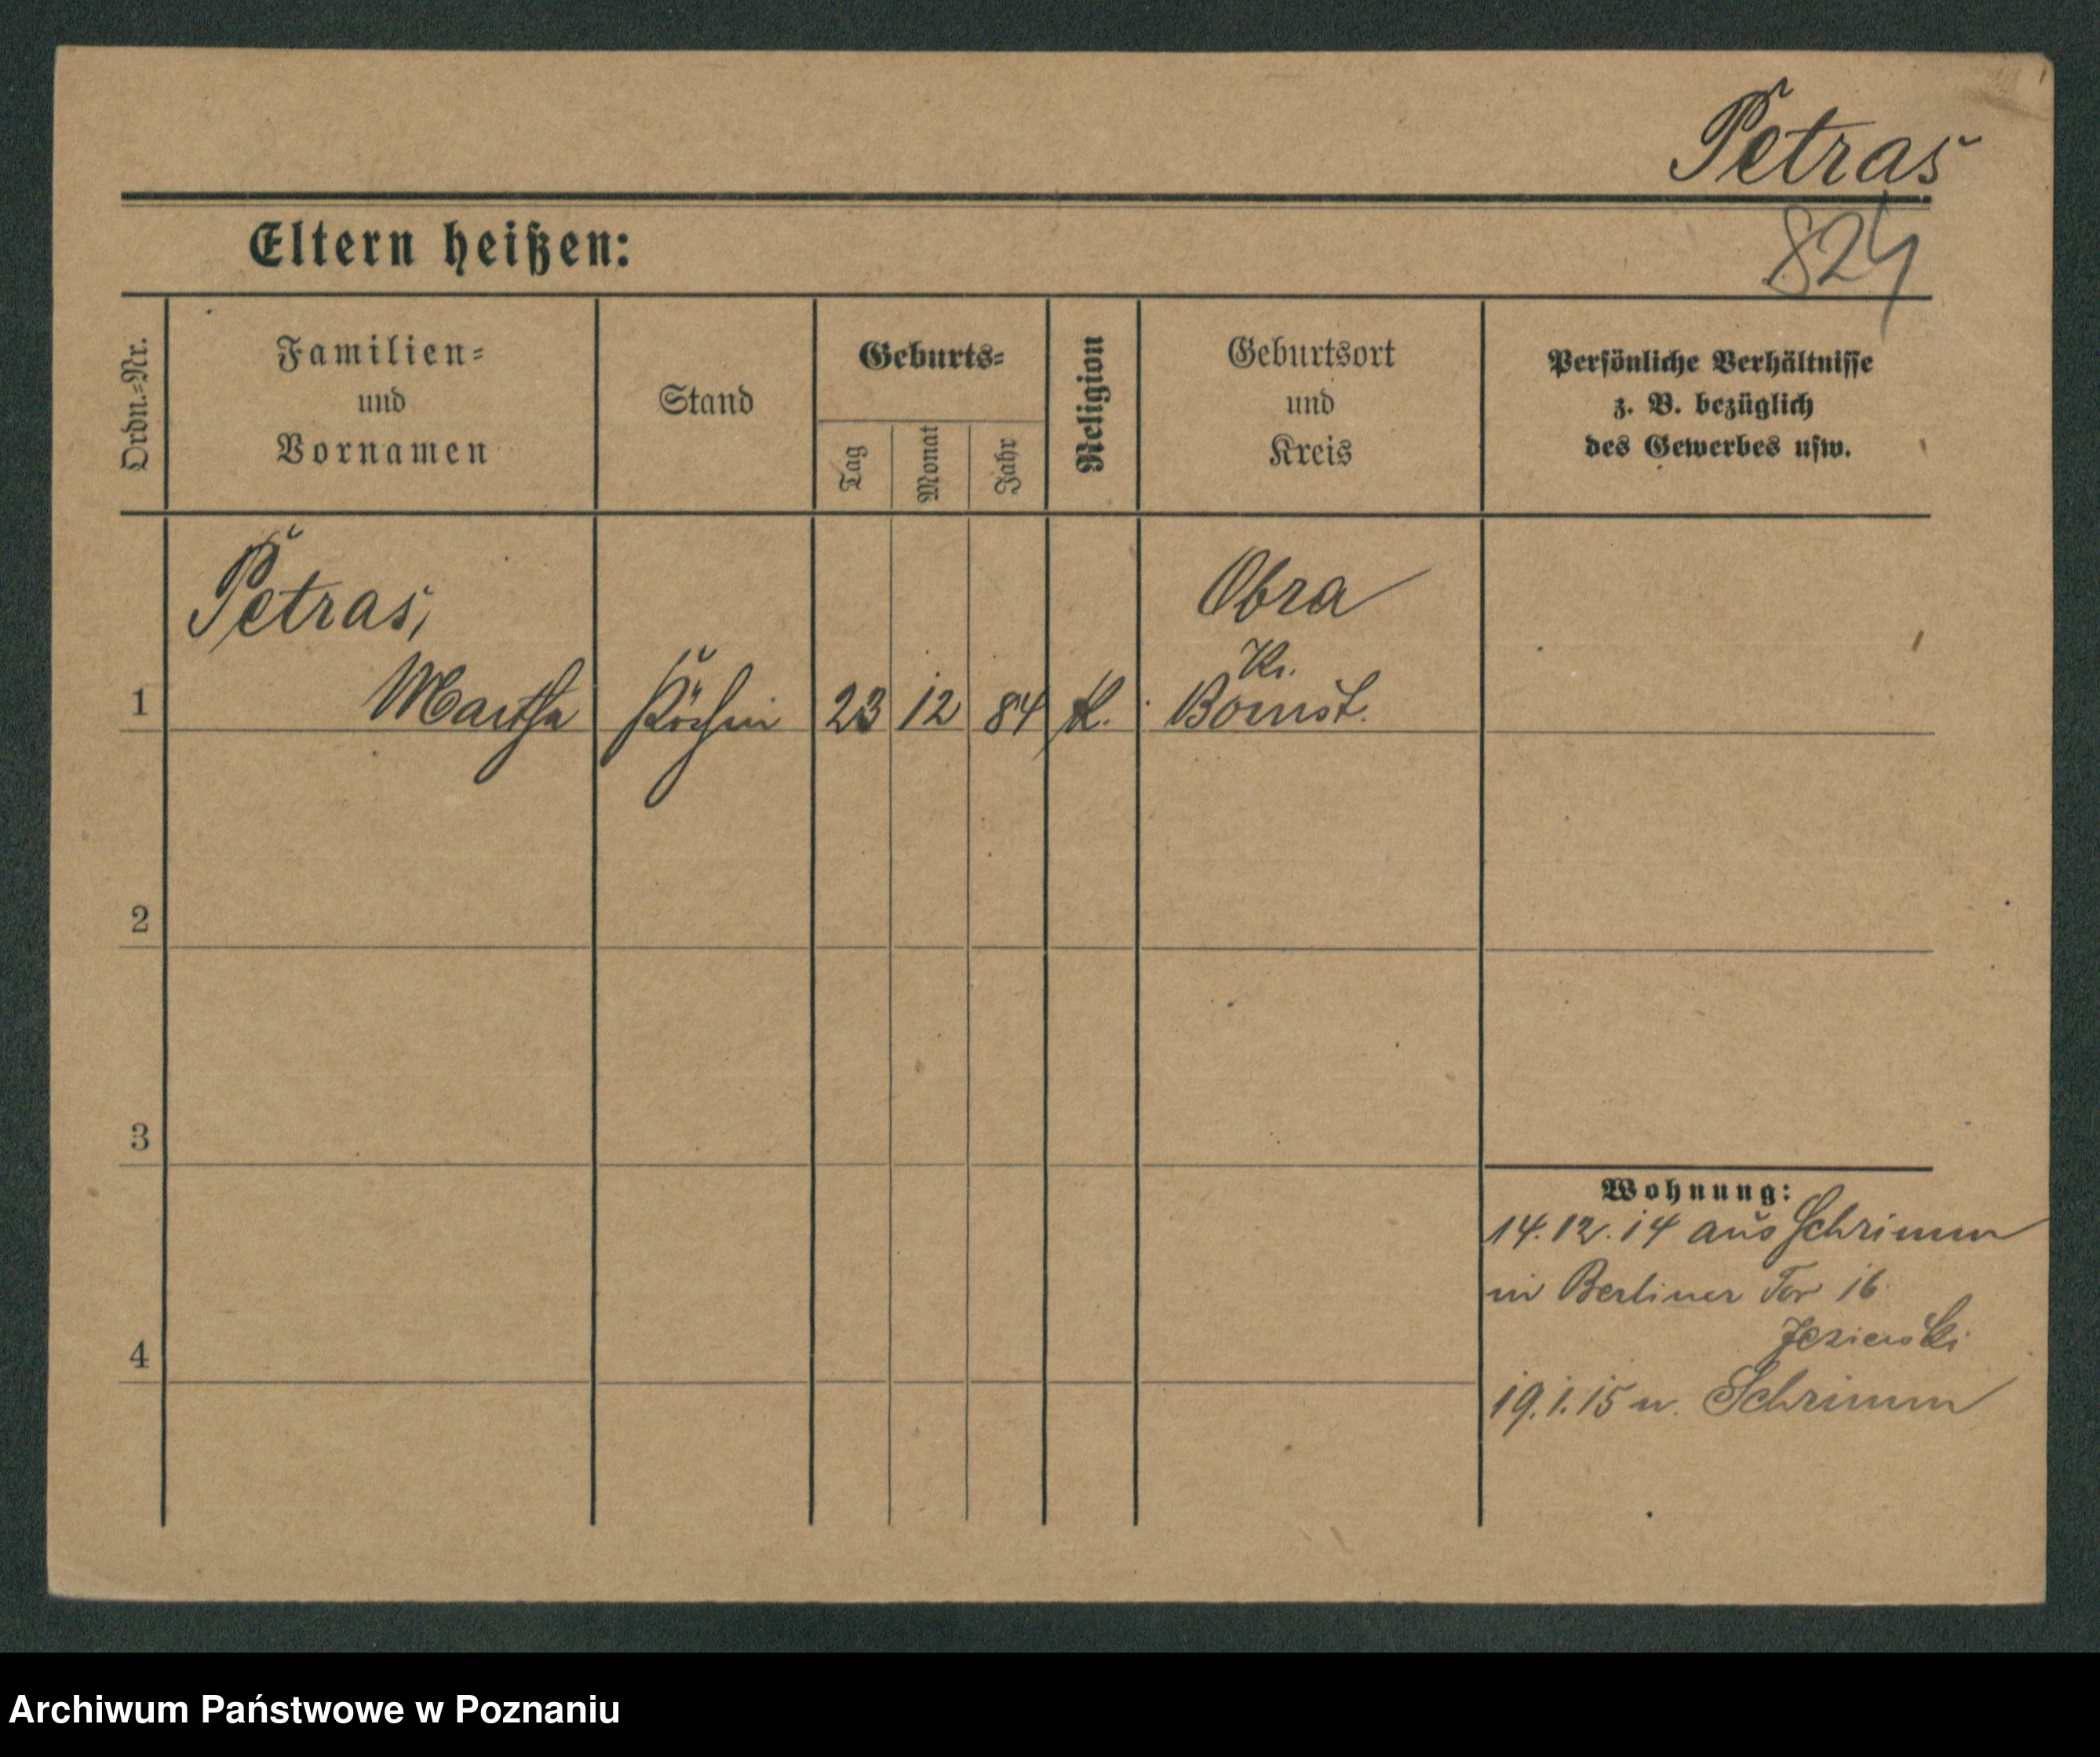 Petras
824
Eltern heißen:
Ordn.-Nr.
Familien-
und
Vornamen
Stand
Geburts-
Tag
Monat
Jahr
Religion
Geburtsort
und
Kreis
Persönliche Verhältnisse
z. B. bezüglich
des Gewerbes usw.
Petras,
Obra
Kr.
1 Martha Köchin 23 12 84 k. Bomst.
2
3
Wohnung:
14.12.14 aus Schrimm
in Berliner Tor 16
Jezierski
4
19.1.15 n. Schrimm
Archiwum Państwowe w Poznaniu